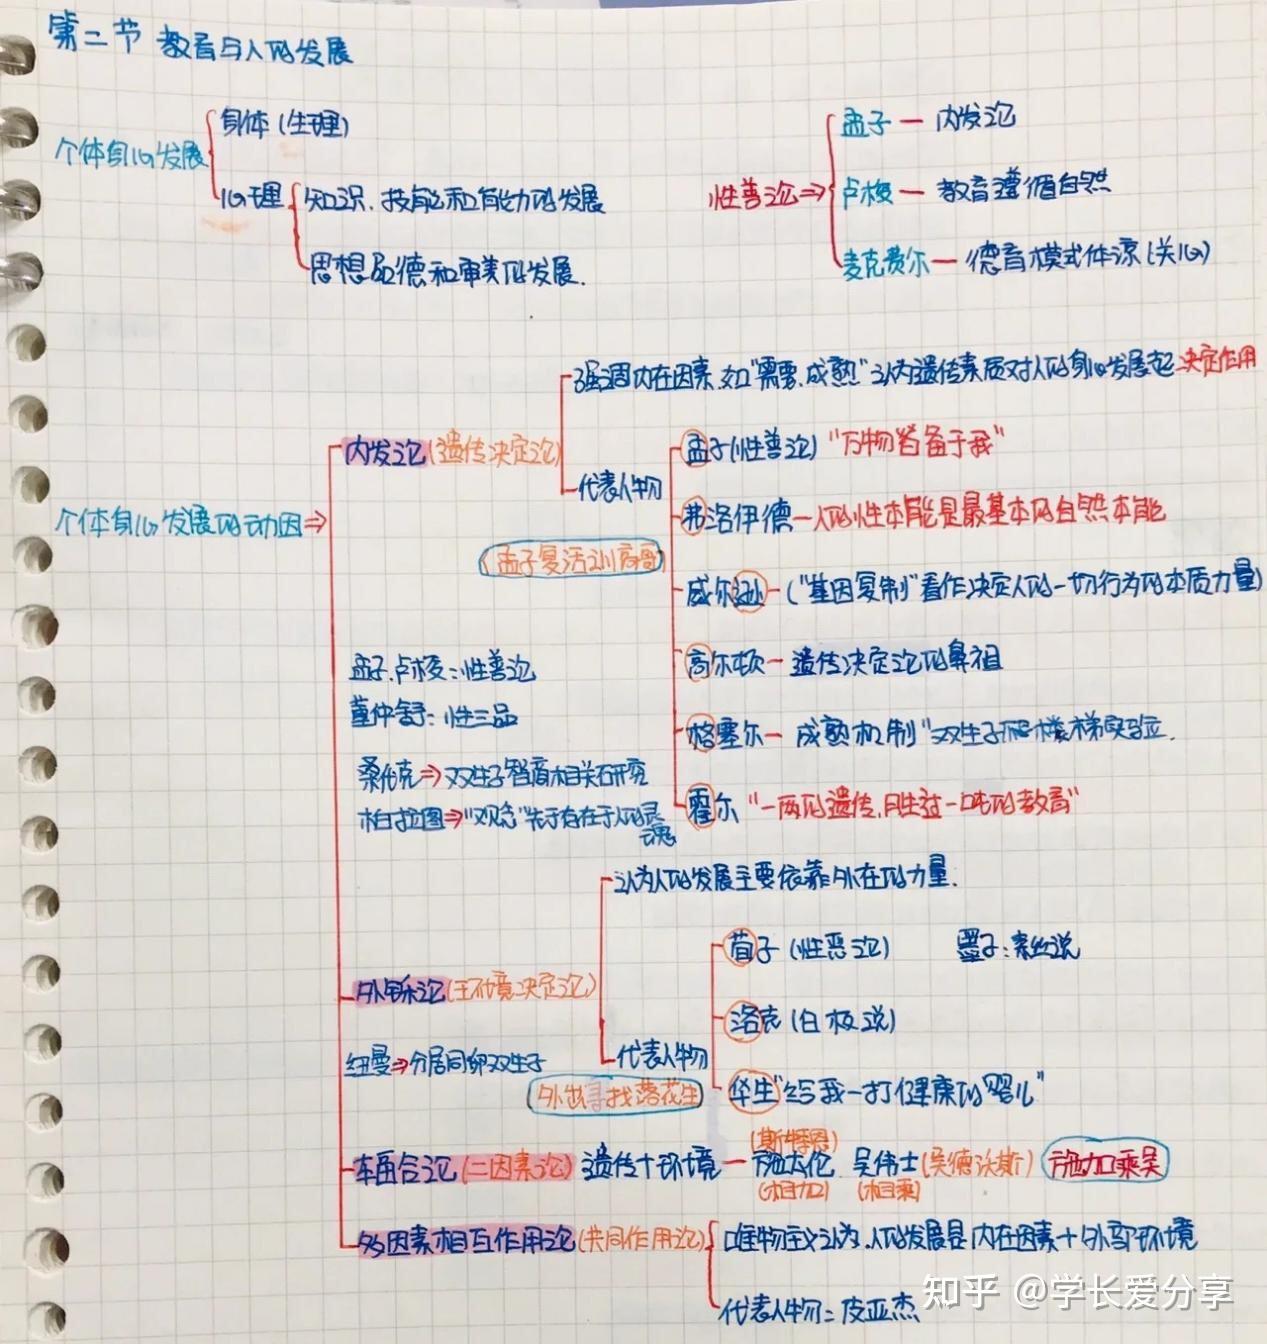 第二节 教育与人的发展
个体身心发展
身体（生理）
心理
知识、技能和能力的发展
思想品德和审美的发展.
性善论⇒
孟子— 内发论
卢梭— 教育遵循自然
麦克费尔— 德育模式体谅(关心)
个体身心发展的动因⇒
内发论(遗传决定论)
强调内在因素,如"需要、成熟"认为遗传素质对人的身心发展起决定作用
代表人物
孟子(性善论) "万物皆备于我"
弗洛伊德—人的性本能是最基本的自然本能
孟子复活训高哥
威尔逊—("基因复制"看作决定人的一切行为的本质力量)
高尔顿— 遗传决定论的鼻祖
格塞尔— 成熟机制"双生子爬楼梯实验.
霍尔 "一两的遗传,胜过一吨的教育"
孟子.卢梭:性善论
董仲舒: 性三品
桑代克⇒双生子智商相关研究
柏拉图⇒"观念"先于存在于人的灵
魂
外铄论(环境决定论)
认为人的发展主要依靠外在的力量.
代表人物
荀子 (性恶论) 墨子:素丝说
洛克 (白板说)
华生"给我一打健康的婴儿"
纽曼⇒分居同卵双生子
外出寻找落花生
辐合论(二因素论) 遗传+环境—
(斯特恩)
施太伦
(相加)
吴伟士(吴德沃斯)
(相乘)
施加乘吴
多因素相互作用论(共同作用论)
唯物主义认为.人的发展是内在因素+外部环境
代表人物: 皮亚杰
知乎 @学长爱分享